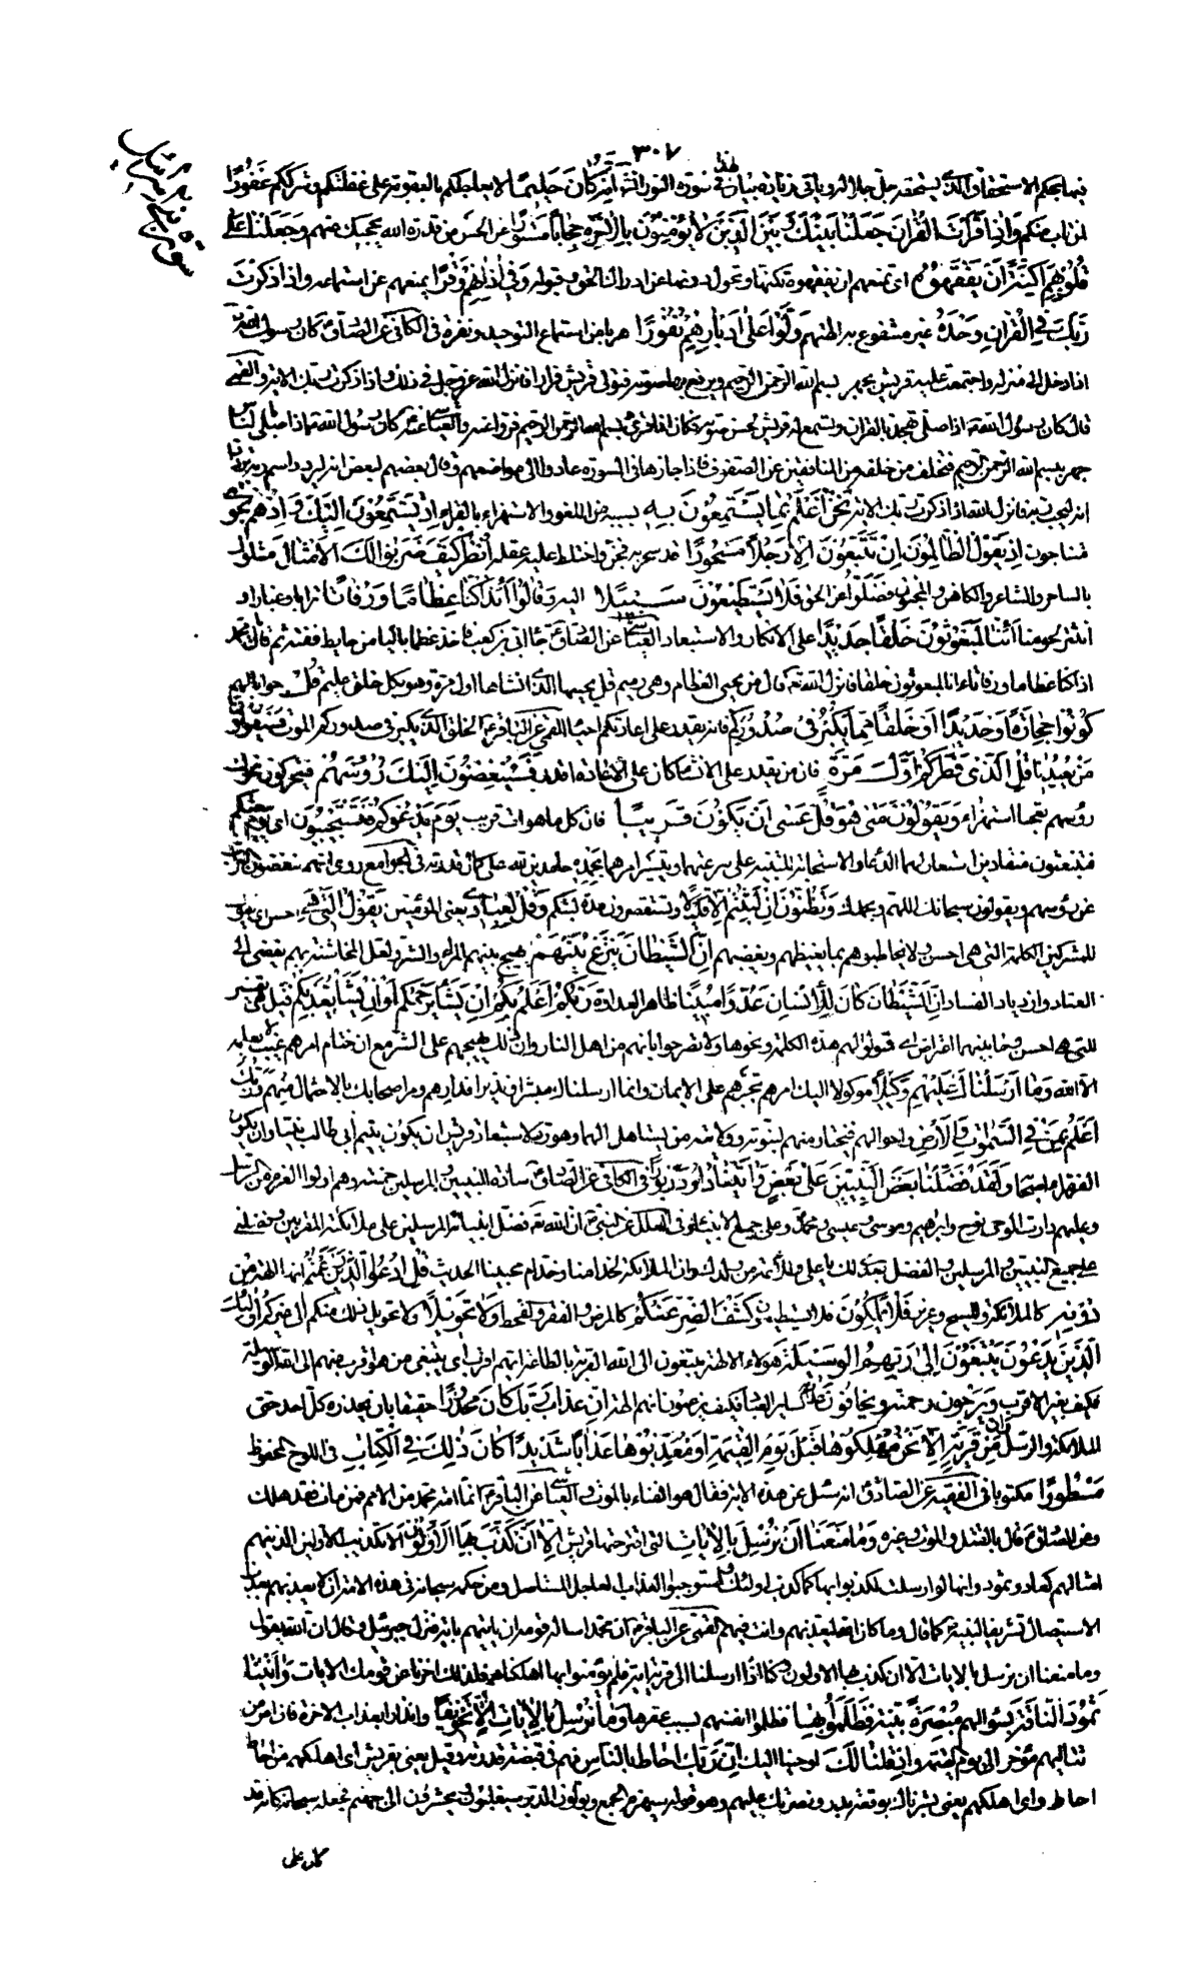 ٣٠٧
سورة بني إسرائيل
فيما يحكم الاستحقاق الذي يستحقه جل جلاله و يأتي زيادة بيان لهذا في سورة النور انشاء الله إنه كان حليما لا يعاجلكم بالعقوبة على غفلتكم و شرككم غفورا
لمن تاب منكم وإذا قرأت القرآن جعلنا بينك وبين الذين لا يؤمنون بالآخرة حجابا مستورا عن الحس من قدرة الله يحجبك عنهم وجعلنا على
قلوبهم أكنة أن يفقهوه أي تمنعهم ان يفقهوه تكنها وتحول دونها عن ادراك الحق و قبوله وفي آذانهم وقرا يمنعهم عن استماعه وإذا ذكرت
ربك في القرآن وحده غير مشفوع به الهتهم ولوا على أدبارهم نفورا هربا من استماع التوحيد و نفرة في الكافي عن الصادق كان رسول الله
اذا دخل الى منزله واجتمعت عليه قريش يجهر ببسم الله الرحمن الرحيم ويرفع بها صوته فتولي قريش فرارا فانزل الله عز وجل في ذلك واذا ذكرت ربك الاية والقمي
قال كان رسول الله اذا صلى تهجد بالقرآن و تستمع له قريش لحسن صوته فكان اذا قرئ بسم الله الرحمن الرحيم فروا عنه والعياشي عنه كان رسول الله اذا صلى بالناس
جهر ببسم الله الرحمن الرحيم فتخلف من خلفه من المنافقين عن الصفوف فاذا جازها في السورة عادوا الى مواضعهم وقال بعضهم لبعض انه ليردد اسم ربه تردادا
انه ليحب ربه فانزل الله اذا ذكرت ربك الاية نحن أعلم بما يستمعون به بسببه من اللغو والاستهزاء بالقرآن إذ يستمعون إليك وإذ هم نجوى
متناجون إذ يقول الظالمون إن تتبعون إلا رجلا مسحورا قد سحر به فجن واختلط عليه عقله انظر كيف ضربوا لك الأمثال مثلوك
بالساحر والشاعر والكاهن والمجنون فضلوا عن الحق فلا يستطيعون سبيلا اليه وقالوا أئذا كنا عظاما ورفاتا ترابا وغبارا و
انتثر لحومنا أئنا لمبعوثون خلقا جديدا على الانكار والاستبعاد العياشي عن الصادق جاء ابي بن كعب فاخذ عظما باليا من حايط ففته ثم قال يا محمد
اذا كنا عظاما ورفاتا ءانا لمبعوثون خلقا فانزل الله قال من يحيي العظام وهي رميم قل يحييها الذي انشاها اول مرة وهو بكل خلق عليم قل جوابا لهم
كونوا حجارة أو حديدا أو خلقا مما يكبر في صدوركم فانه يقدر على اعادتكم احياء القمي عن الباقر الخلق الذي يكبر في صدوركم الموت فسيقولون
من يعيدنا قل الذي فطركم أول مرة فان من يقدر على الانشاء كان على الاعادة اقدر فسينغضون إليك رؤوسهم فيحركون نحوك
رؤسهم تعجبا استهزاء ويقولون متى هو قل عسى أن يكون قريبا فان كل ما هو ات قريب يوم يدعوكم فتستجيبون اي يوم يبعثكم
فتنبعثون منقادين استعار لهما الدعاء والاستجابة للتنبيه على سرعتهما وتيسر امرهما بحمده حامدين لله على كمال قدرته في الجوامع روي انهم ينفضون التراب
عن رؤسهم ويقولون سبحانك اللهم وبحمدك وتظنون إن لبثتم إلا قليلا وتستقصرون مدة لبثكم وقل لعبادي يعني المؤمنين يقولوا التي هي أحسن اي يقولوا
للمشركين الكلمة التي هي احسن ولا يخاطبوهم بما يغيظهم ويغضبهم إن الشيطان ينزغ بينهم يهيج بينهم المراء والشر ولعل المخاشنة بهم تفضي الى
العناد وازدياد الفساد إن الشيطان كان للإنسان عدوا مبينا ظاهر العداوة ربكم أعلم بكم إن يشأ يرحمكم أو إن يشأ يعذبكم قيل هي تفسير
للتي هي احسن وما بينهما اعتراض اي قولوا لهم هذه الكلمة ونحوها ولا تصرحوا بانهم من اهل النار فان ذلك يهيجهم على الشر مع ان ختام امرهم غيب لا يعلمه
الا الله وما أرسلناك عليهم وكيلا موكولا اليك امرهم تجبرهم على الايمان وانما ارسلناك مبشرا ونذيرا فدارهم ومر اصحابك بالاحتمال منهم وربك
أعلم بمن في السموات والأرض وباحوالهم فيختار منهم لنبوته وولايته من يشاء هل لها وهو رد لاستبعاد قريش ان يكون يتيم ابي طالب نبيا وان يكون
الفقراء اصحابه ولقد فضلنا بعض النبيين على بعض وآتينا داود زبورا في الكافي عن الصادق سادة النبيين والمرسلين خمسة وهم اولوا العزم من الرسل
وعليهم دارت الوحى نوح وابراهيم وموسى وعيسى ومحمد وعلى جميع الانبياء وفي العلل عن النبي ان الله فضل انبيائه المرسلين على ملائكته المقربين وفضلني
على جميع النبيين والمرسلين والفضل بعدي لك يا علي وللائمة من ولدك وان الملائكة لخدامنا وخدام محبينا الحديث قل ادعوا الذين زعمتم انها الهة من
دونه كالملائكة والمسيح وعزير فلا يملكون فلا يستطيعون كشف الضر عنكم كالمرض والفقر والقحط ولا تحويلا ولا تحويل ذلك منكم الى غيركم أولئك
الذين يدعون يبتغون إلى ربهم الوسيلة هؤلاء الالهة يبتغون الى الله القربة بالطاعة أيهم أقرب اي يبتغي من هو اقرب منهم الى الله الوسيلة
فكيف بغير الاقرب ويرجون رحمته ويخافون عذابه كساير العباد فكيف يزعمون انهم الهة إن عذاب ربك كان محذورا حقيقا بان يحذره كل احد حتى
الملائكة والرسل وإن من قرية إلا نحن مهلكوها قبل يوم القيمة أو معذبوها عذابا شديدا كان ذلك في الكتاب في اللوح المحفوظ
مسطورا مكتوبا في الفقيه عن الصادق انه سئل عن هذه الاية فقال هو الفناء بالموت العياشي عن الباقر انما امة محمد من الامم فمن مات فقد هلك
وعن الصادق قال بالقتل والموت وغيره وما منعنا أن نرسل بالآيات التي اقترحتها قريش إلا أن كذب بها الأولون الا تكذيب الاولين الذين هم
امثالهم كعاد وثمود وانها لو ارسلت لكذبوا بها كما كذب اولئك واستوجبوا العذاب العاجل المستاصل ومن حكمه سبحانه في هذه الامة ان لا يعذبهم بعذاب
الاستيصال تشريفا لنبيه كما قال وما كان الله ليعذبهم وانت فيهم القمي عن الباقر ان محمدا ساله قومه ان ياتيهم باية فنزل جبرئيل وقال ان الله يقول
وما منعنا ان نرسل بالايات الا ان كذب بها الاولون وكنا اذا ارسلنا الى قرية اية فلم يؤمنوا بها اهلكناهم فلذلك اخرنا عن قومك الايات وآتينا
ثمود الناقة بسؤالهم مبصرة بينة فظلموا بها فظلموا انفسهم بسبب عقرها وما نرسل بالآيات إلا تخويفا وانذارا بعذاب الاخرة فان امر من
تنالهم مؤخر الى يوم القيمة وإذ قلنا لك اوحينا اليك إن ربك أحاط بالناس فهم في قبضة قدرته وقيل يعني بقريش اي اهلكهم من احاط
احاط واي اهلكهم يعني بشرناك بوقعة بدر ونصرتك عليهم وهو قوله سيهزم الجمع ويولون الدبر سيغلبون ويحشرون الى جهنم فجعله سبحانه كانه قد
كان على